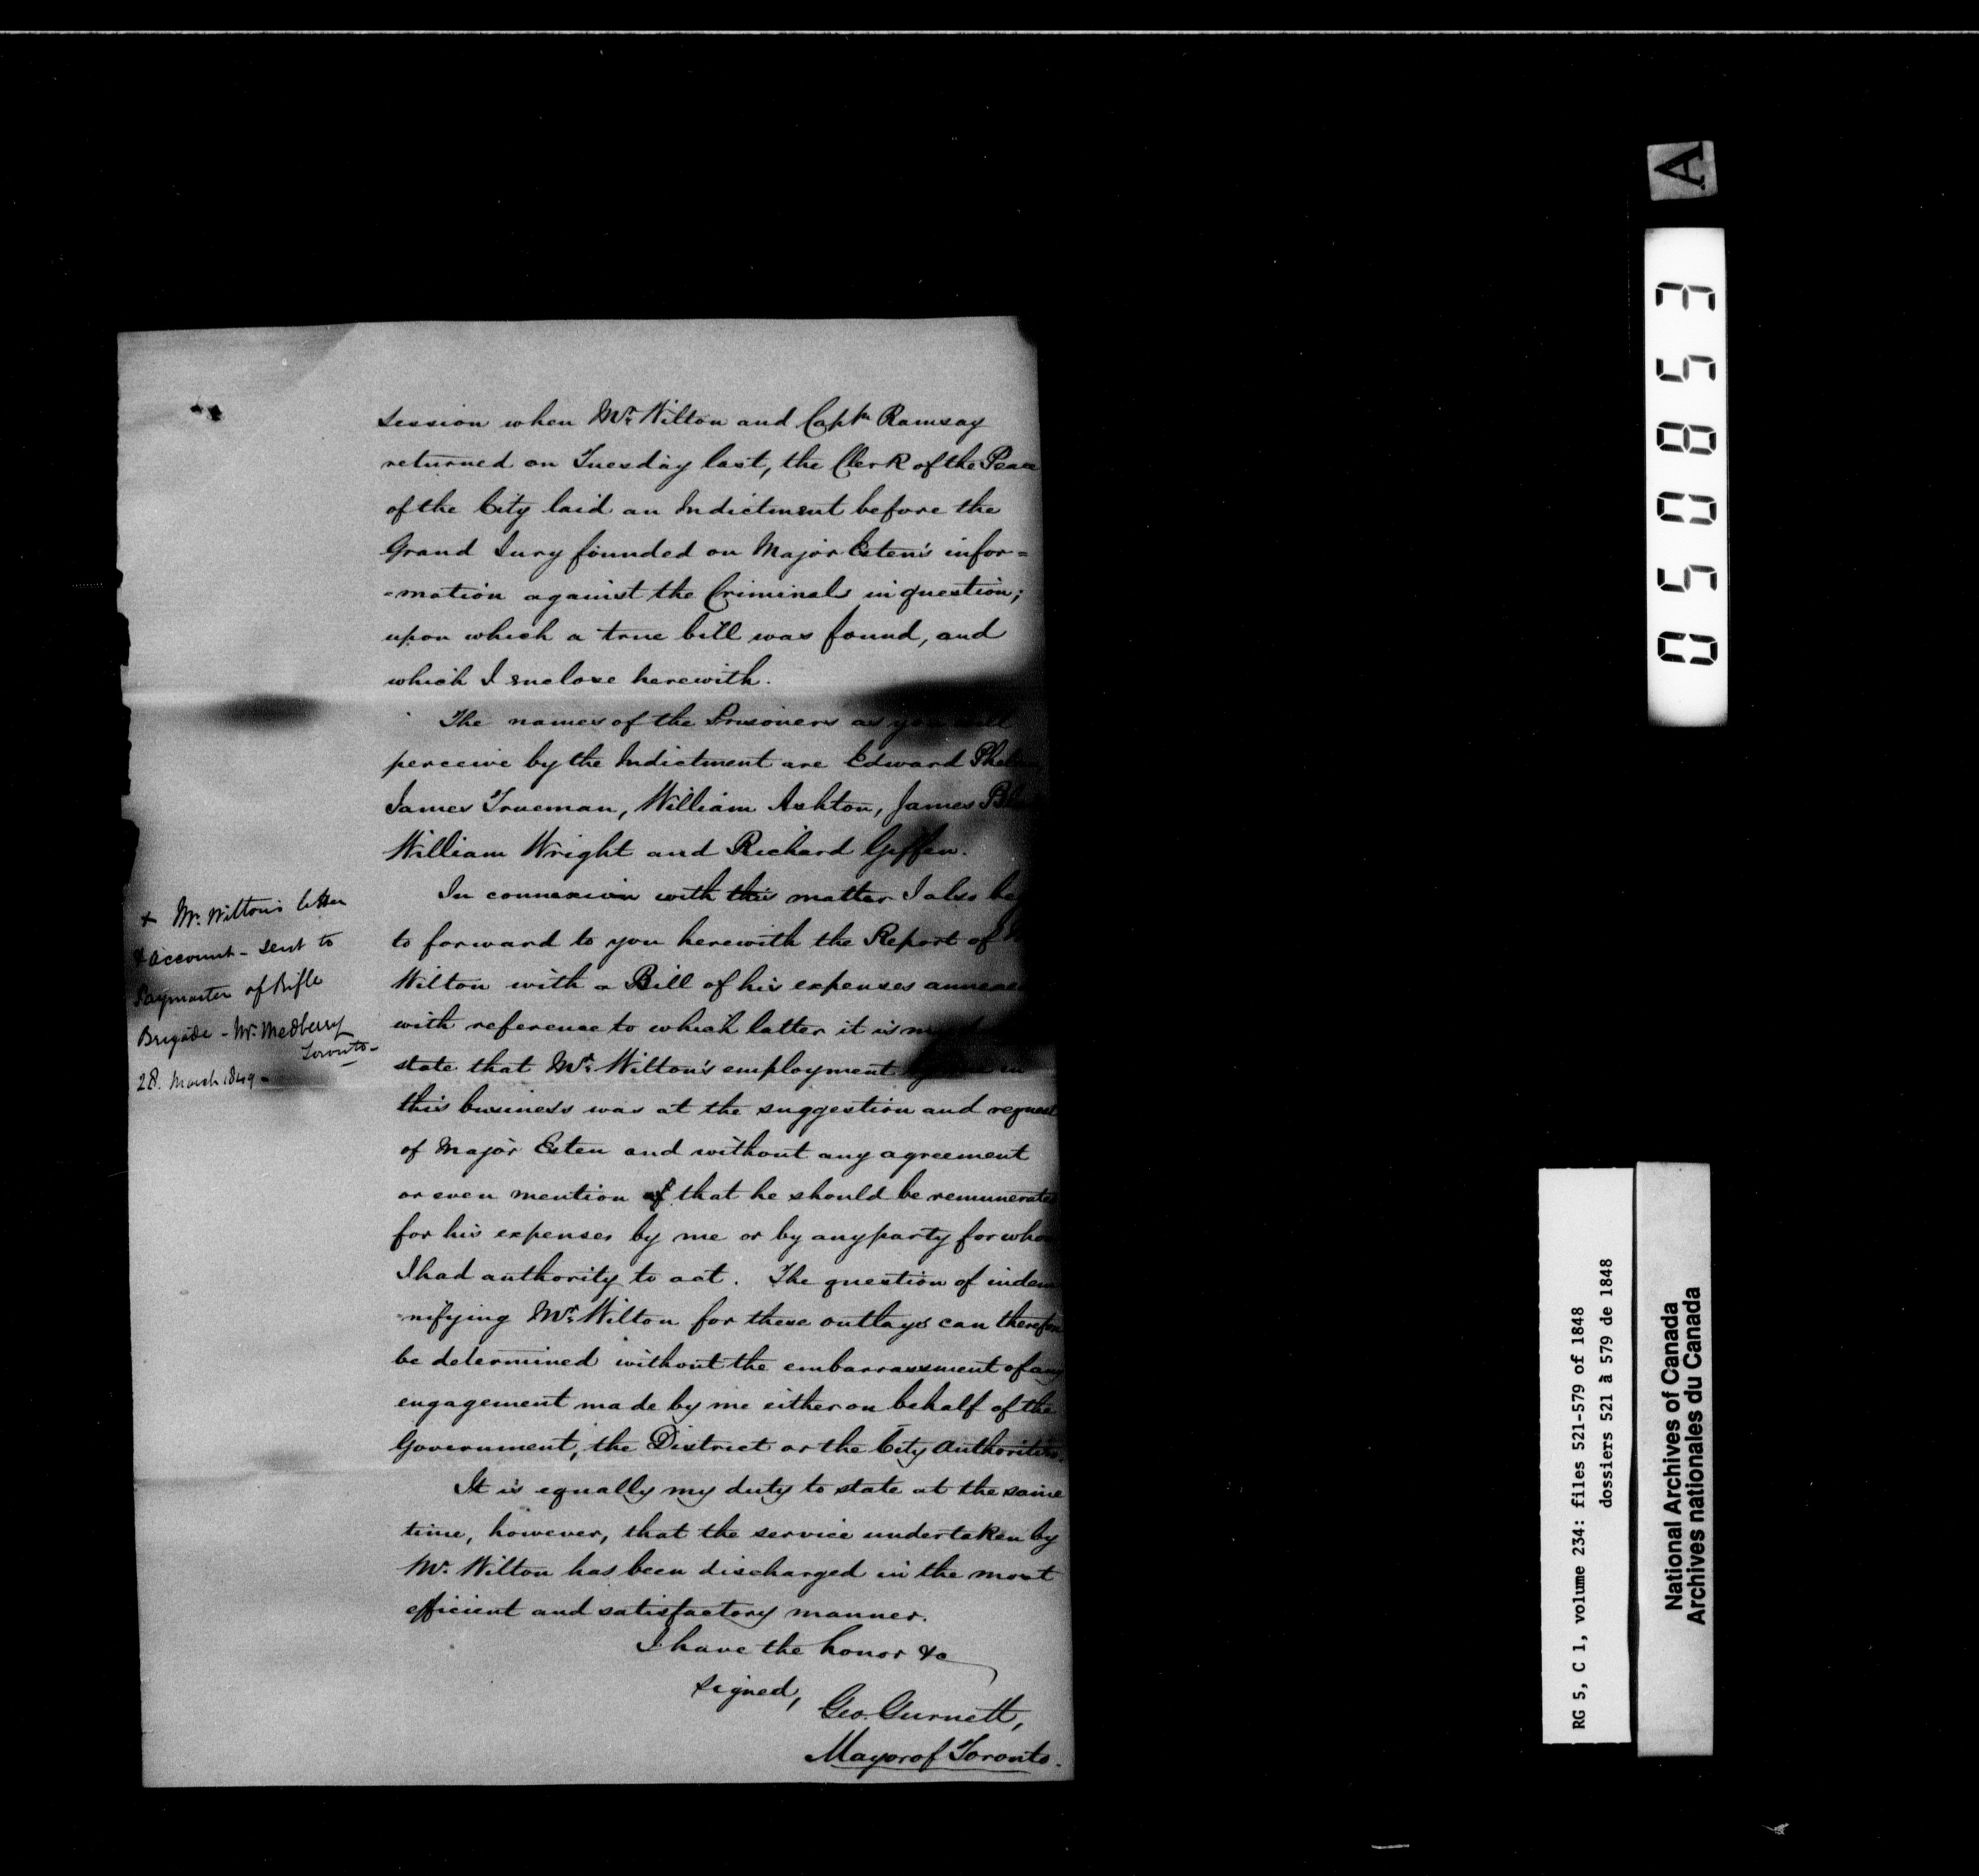 session when Mr. Wilton and Captn Ramsay
returned on Tuesday last, the Clerk of the Peace
of the City laid an Indictment before the
Grand Jury founded on Major Esten's infor=
=mation against the Criminals in question;
upon which a true bill was found, and
which I enclose herewith.
The names of the Prisoners as you will
perceive by the Indictment are Edward
James Trueman, William Ashton, James
William Wright and Richard Giffen.
In connexion with this matter I also beg
to forward to you herewith the Report of
Wilton with a Bill of his expenses annexed
with reference to which latter it is
state that Mr. Wilton's employment by me in
this business was at the suggestion and request
of Major Esten and without any agreement
or even mention of that he should be remunerated
for his expenses by me or by any party for whom
I had authority to act. The question of indem
-nifying Mr. Wilton for these outlays can therefore
be determined without the embarrassment of any
engagement made by me either on behalf of the
Government, the District or the City Authorities.
It is equally my duty to state at the same
time, however, that the service undertaken by
Mr. Wilton has been discharged in the most
efficient and satisfactory manner.
I have the honor &c
signed,
Geo. Gurnett,
Mayor of Toronto.
+ Mr. Wilton's letter
& account - sent to
Paymaster of Rifle
Brigade - Mr. Medberry
Toronto -
28. March 1849 -
A
050853
RG 5, C 1, volume 234: files 521-579 of 1848
dossiers 521 à 579 de 1848
National Archives of Canada
Archives nationales du Canada